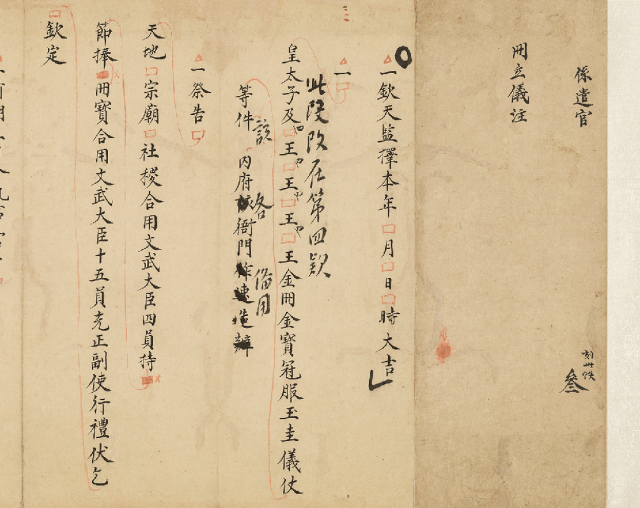 係遣官
冊立儀注
叄
一欽天監擇本年□月□日□時大吉
一□
此段改在第四欵
皇太子及□王□王□王□王金冊金寶冠服玉圭儀仗
等件 內府該衙門作速造辦
該 各 俻用
一祭告□
天地□宗廟□社稷合用文武大臣四員持
節捧冊寶合用文武大臣十五員充正副使行禮伏乞
欽定